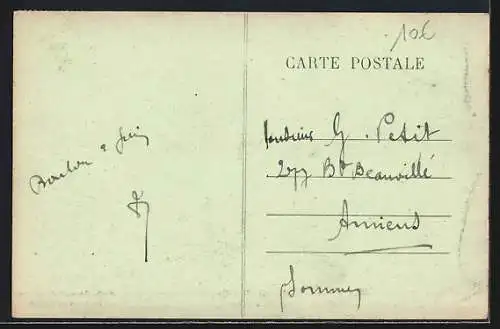 10€
CARTE POSTALE
Monsieur G. Petit
277 Bd Beauvillé
Amiens
Somme